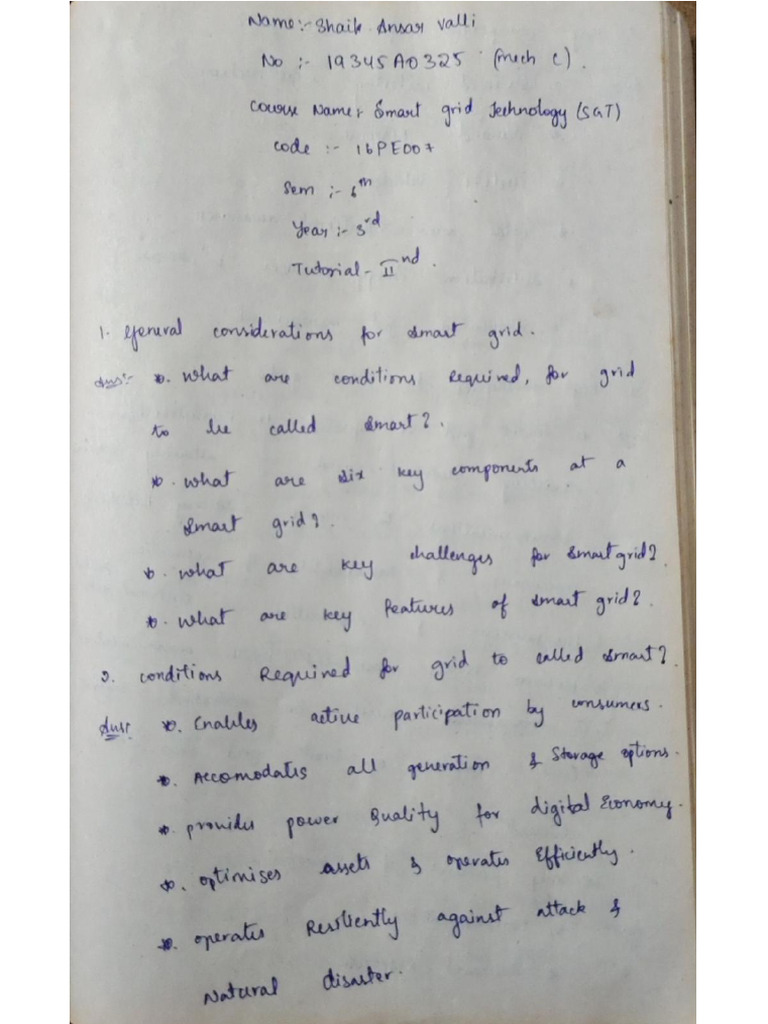 Name:- Shaik Ansar Valli
No :- 19345A0325 (Mech C).
Course Name: Smart grid Technology (SGT)
Code :- 16PE007
Sem :- 6th
Year :- 3rd
Tutorial - IInd.
1. General considerations for smart grid.
Ans:- *. What are conditions Required, for grid
to be called smart?.
*. What are six key components at a
smart grid?.
*. What are key challenges for smart grid?
*. What are key features of smart grid?
2. Conditions Required for grid to called smart?
Ans: *. Enables active participation by consumers.
*. Accomodates all generation & storage options.
*. provides power Quality for digital Economy.
*. optimises assets & operates Efficiently.
*. operates Resiliently against attack &
Natural disaster.